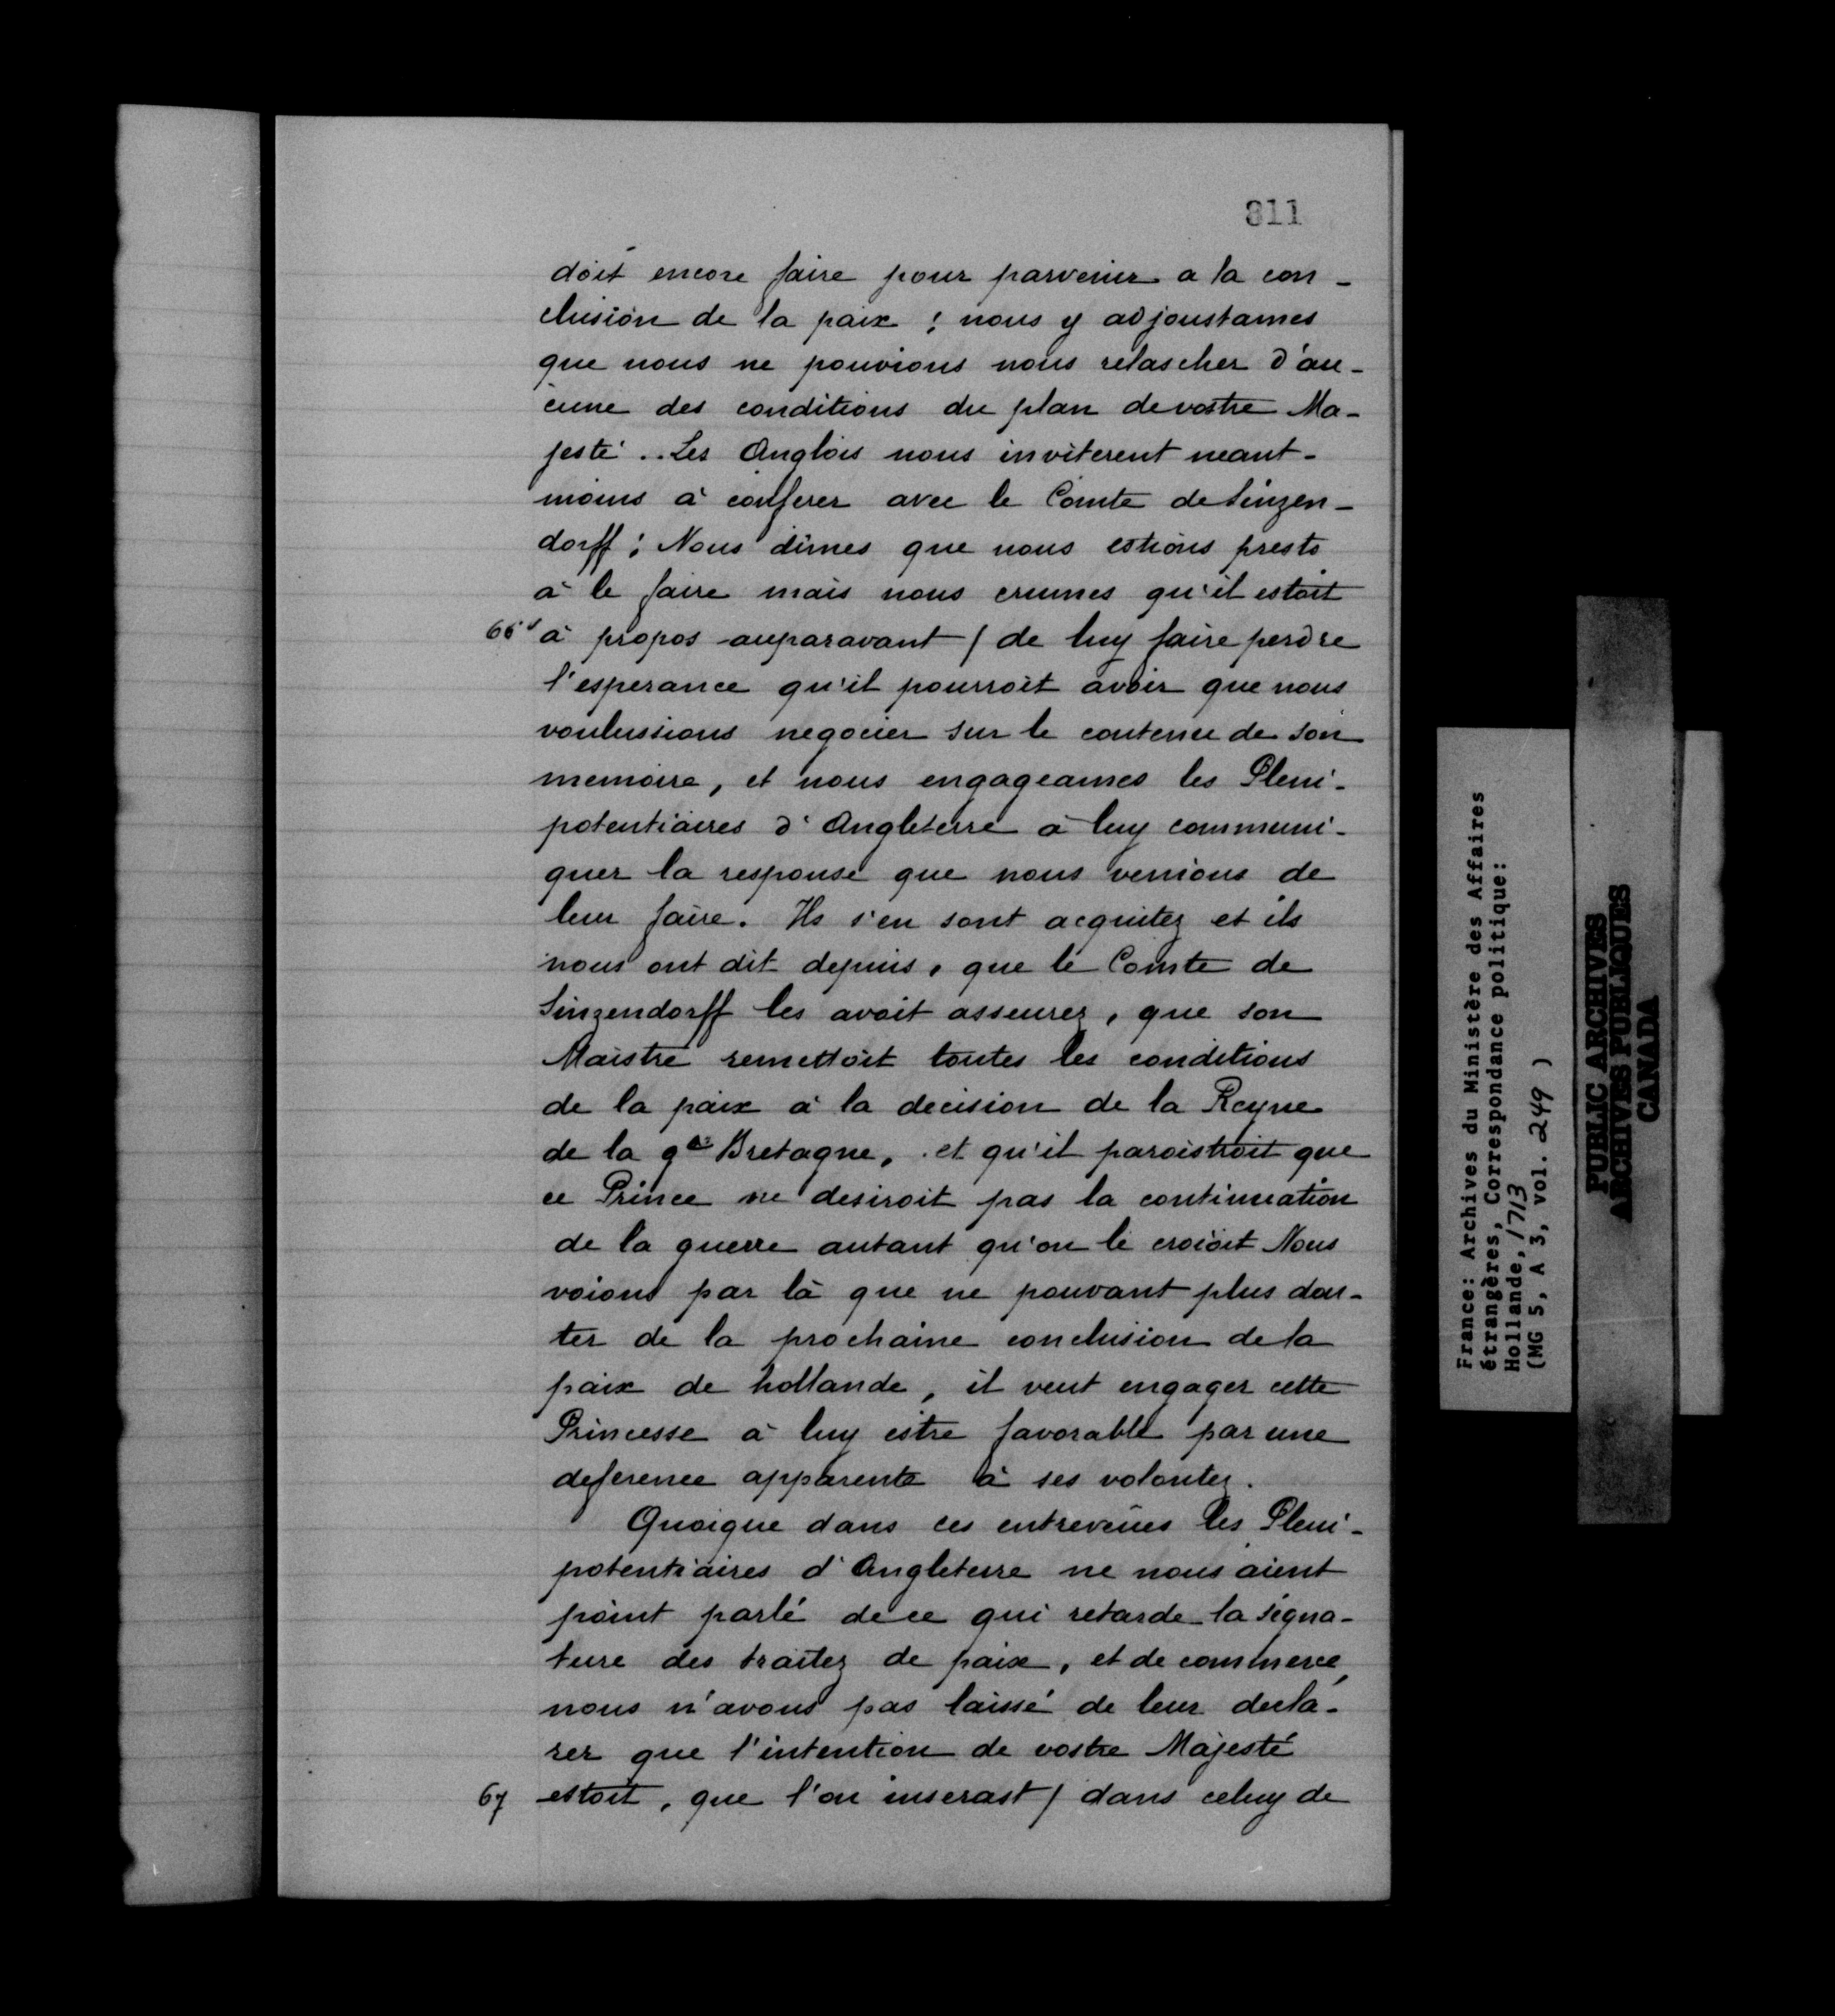 811
doit encore faire pour parvenir a la con-
clusion de la paix ; nous y adjoustames
que nous ne pouvions nous relascher d'au-
cune des conditions du plan de vostre Ma-
jesté .. Les Anglois nous inviterent neant-
moins à conferer avec le Comte de Sinzen-
dorff ; Nous dimes que nous estions prests
à le faire mais nous crumes qu'il estoit
66v à propos auparavant / de luy faire perdre
l'esperance qu'il pourroit avoir que nous
voulussions negocier sur le contenu de son
memoire, et nous engageames les Pleni-
potentiaires d'Angleterre à luy communi-
quer la response que nous venions de
leur faire. Ils s'en sont acquitez et ils
nous ont dit depuis, que le Comte de
Sinzendorff les avoit asseurez, que son
Maistre remettoit toutes les conditions
de la paix à la decision de la Reyne
de la gde Bretagne, et qu'il paroistroit que
ce Prince ne desiroit pas la continuation
de la guerre autant qu'on le croioit Nous
voions par là que ne pouvant plus dou-
ter de la prochaine conclusion de la
paix de hollande, il veut engager cette
Princesse à luy estre favorable par une
deference apparente à ses volontez.
Quoique dans ces entreveües les Pleni-
potentiaires d'Angleterre ne nous aient
point parlé de ce qui retarde la signa-
ture des traitez de paix, et de commerce,
nous n'avons pas laissé de leur decla-
rer que l'intention de vostre Majesté
67 estoit, que l'on inserast / dans celuy de
France: Archives du Ministère des Affaires
étrangères, Correspondance politique:
Hollande, 1713
(MG 5, A 3, vol. 249 )
PUBLIC ARCHIVES
ARCHIVES PUBLIQUES
CANADA